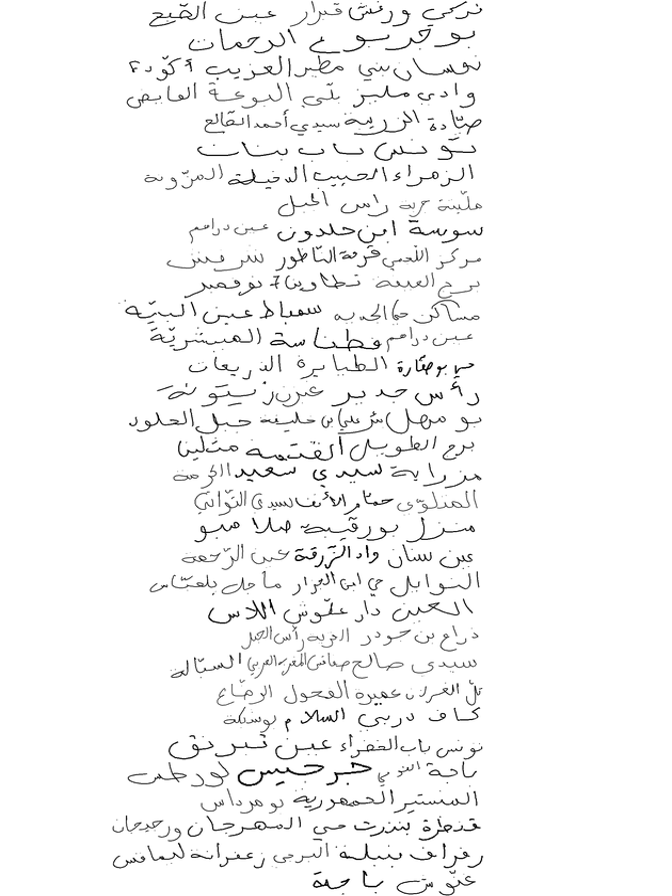 تركي ورغش قبرار عين الضبع
بوجربوع الرحمات
نفسان بني مطير العزيب أكودة
وادي مليز بلي البوعة الفايض
صيادة الزريبة سيدي أحمد الصالح
تونس باب بنات
الزهراء الحبيب الدخيلة المزونة
مليتة جربة راس الجبل
سوسة ابن خلدون عين دراهم
مركز اللجمي قرمة الناظور
برج العيفة تطاوين 7 نوفمبر
مساكن حي الحدبة سمباط عين البنية
عين دراهم فطناسة المبشرية
حي بوصفارة الطبايرة الذريعات
رأس جدير عين زيتونة
بو مهل علي بن خليفة جبل الجلود
برج الطويل القتمة متلين
مزراية سيدي سعيد
المتلوي حمام الأنف سيدي التواتي
منزل بورقيبة صلامبو
عين سنان واد الزرقة عين الرحمة
النوابل حي ابن الجزار ماجل بلعباس
العين دار علوش اللاس
ذراع بن جودر القرية رأس الجبل
سيدي صالح صفاقس المغرب العربي السبالة
تل الغزلان عميرة الفحول الرضاع
كاف دربي السلام بوسكة
تونس باب الخضراء عين تبرنق
باجة الشمالي جرجيس لوردات
المنستير الجمهورية بومرداس
قنطرة بنزرت حي المهرجان ورجيجان
رفراف بنبلة البرجي زعفرانة ليماقس
علوش باجة